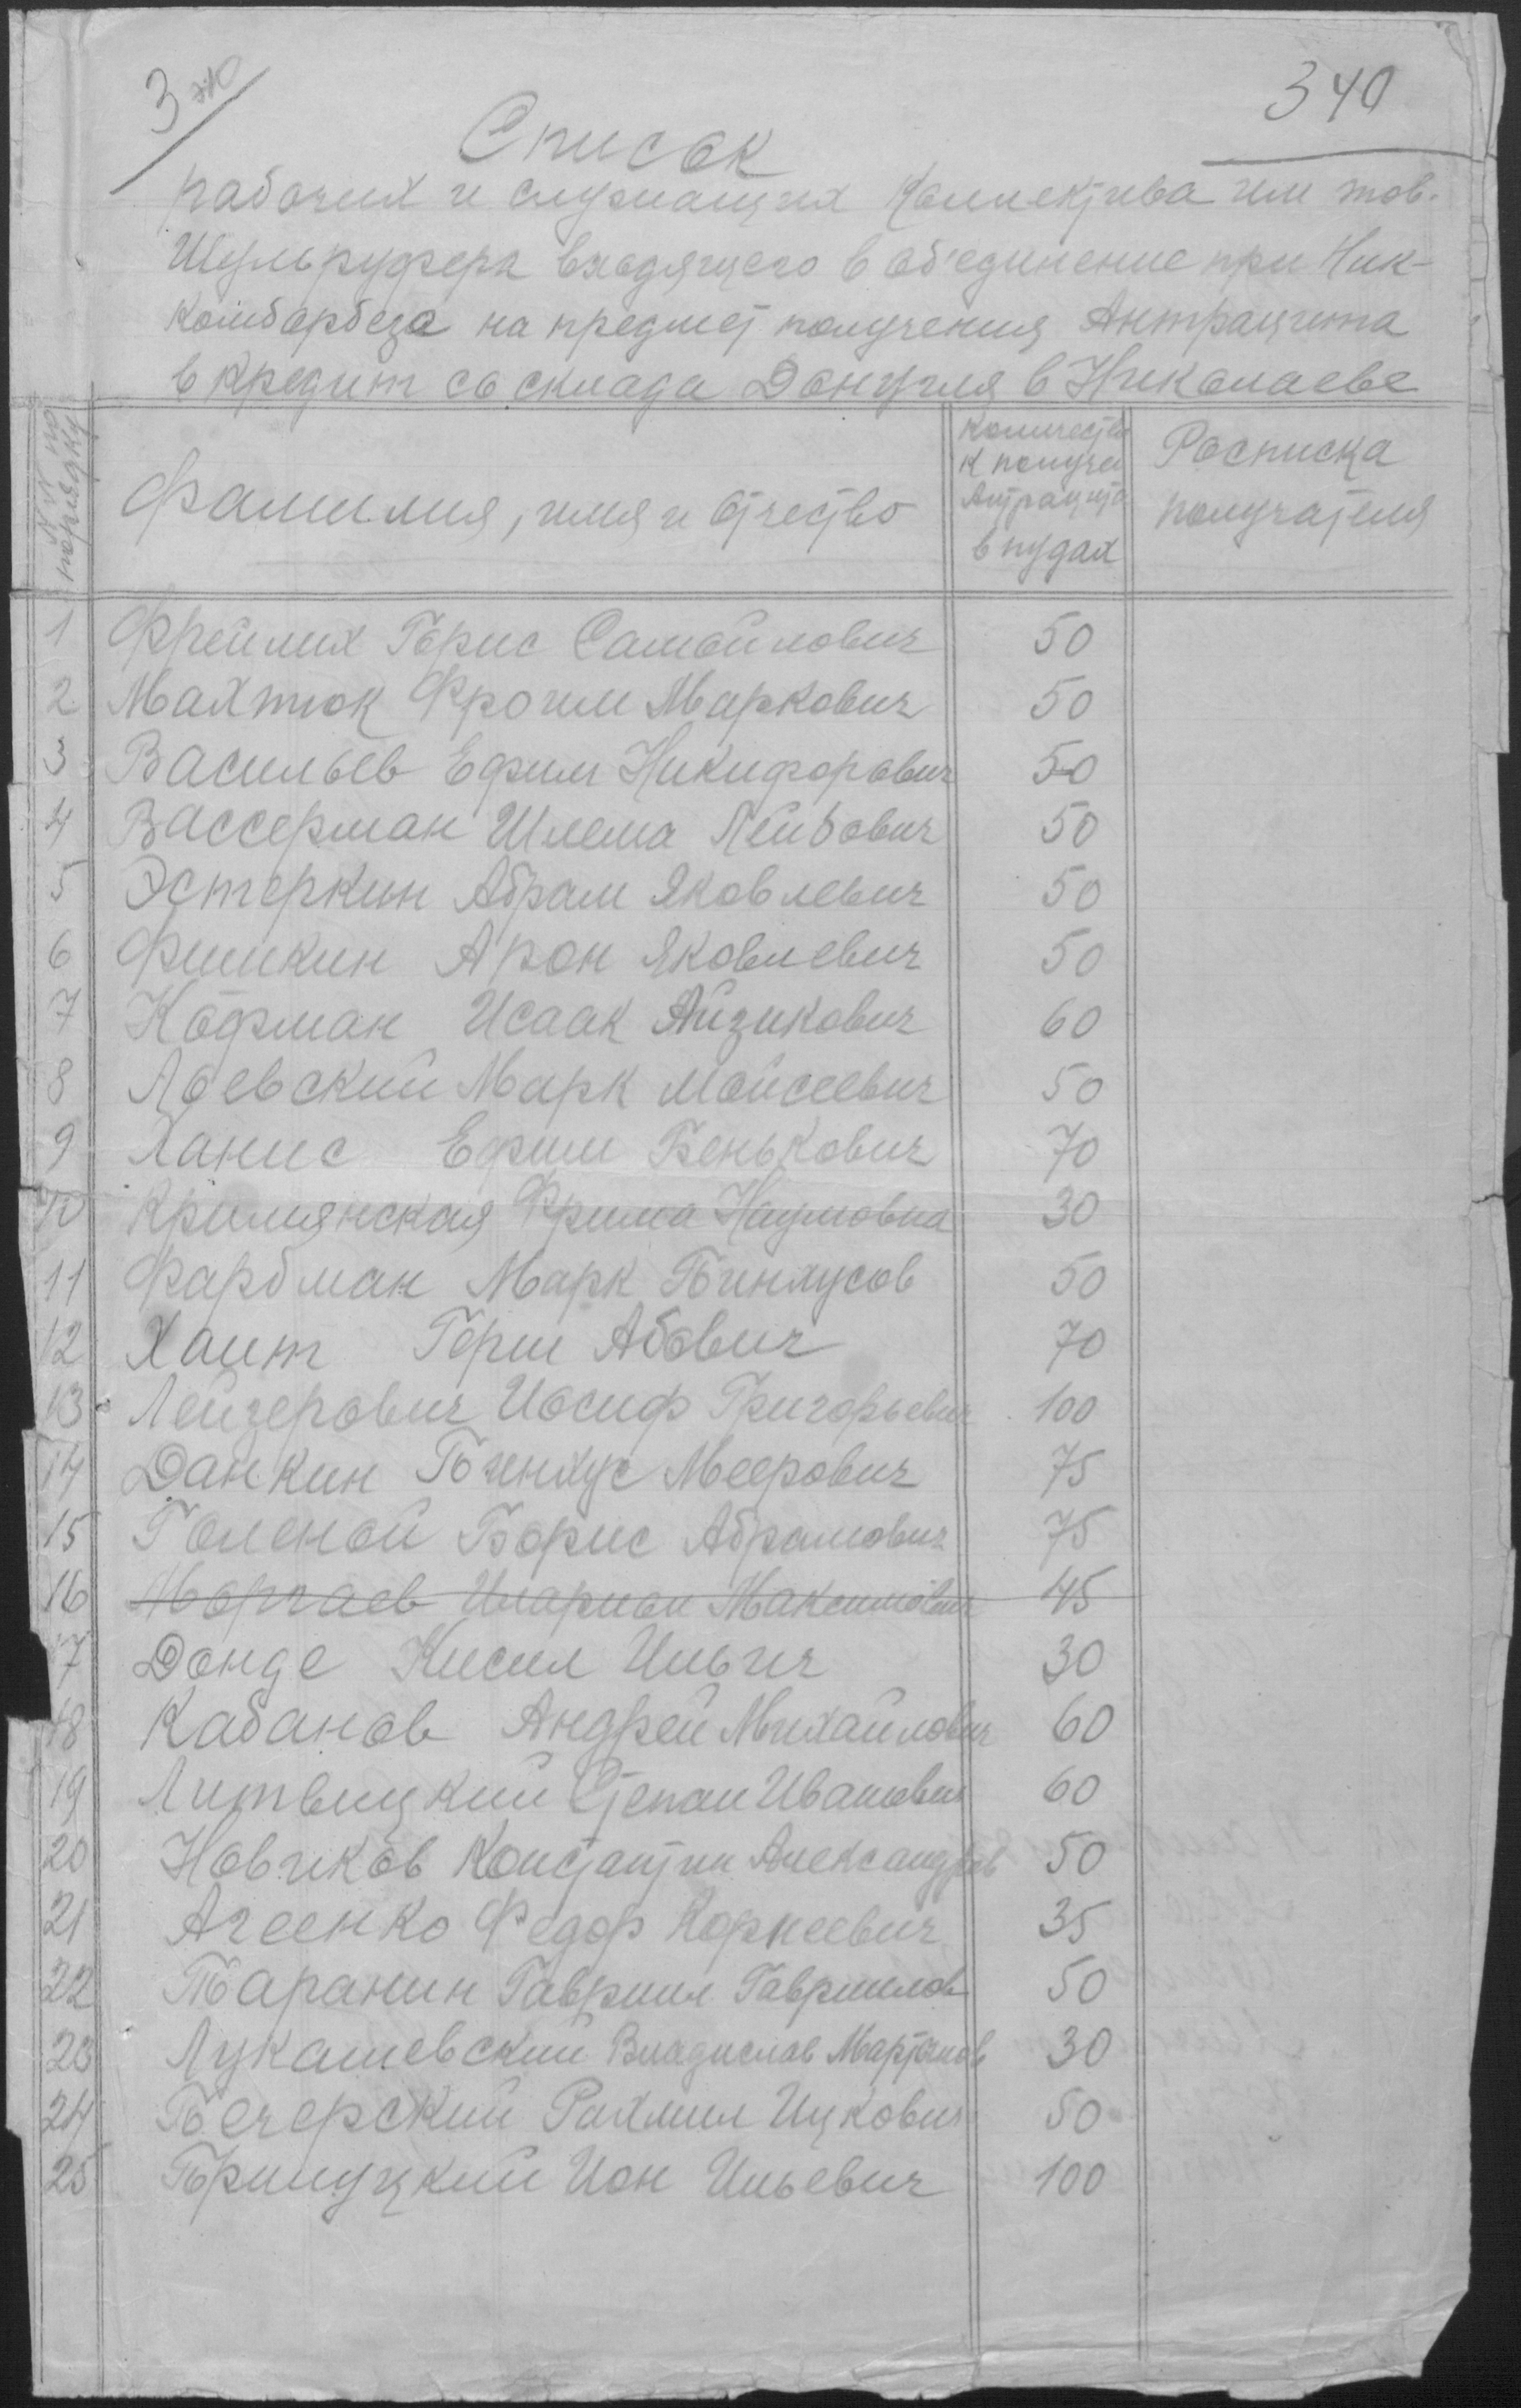 3
340
Список
рабочих и служащих Коллектива им тов.
Шульруфера входящего в об'единение при Ник-
комборбеза на предмет получения Антрацита
в кредит со склада Донугля в Николаеве
№№ по порядку
Фамилия, имя и отчество
Количество
к получен
Антрацита
в пудах
Расписка
получателя
1 Фрейлих Борис Самойлович 50
2 Махтюк Фроим Маркович 50
3 Васильев Ефим Никифорович 50
4 Вассерман Шлема Лейбович 50
5 Эстеркин Абрам Яковлевич 50
6 Фишкин Арон Яковлевич 50
7 Кофман Исаак Айзикович 60
8 Лоевский Марк Мойсеевич 50
9 Ханис Ефим Бенькович 70
10 Кримянская Фрима Наумовна 30
11 Фарбман Марк Пинхусов 50
12 Хаит Герш Абович 70
13 Лейзерович Иосиф Григорьевич 100
14 Данкин Пинхус Меерович 75
15 Голеной Борис Абрамович 75
16 Моргаев Иларион Максимович 45
17 Донде Кисил Ильич 30
18 Кабанов Андрей Михайлович 60
19 Литвицкий Степан Иванович 60
20 Новиков Константин Александров 50
21 Агеенко Федор Корнеевич 35
22 Таранин Гавриил Гаврилов 50
23 Лукашевский Владислав Мартынов 30
24 Печерский Рахмил Ицкович 50
25 Прилуцкий Ион Ильевич 100